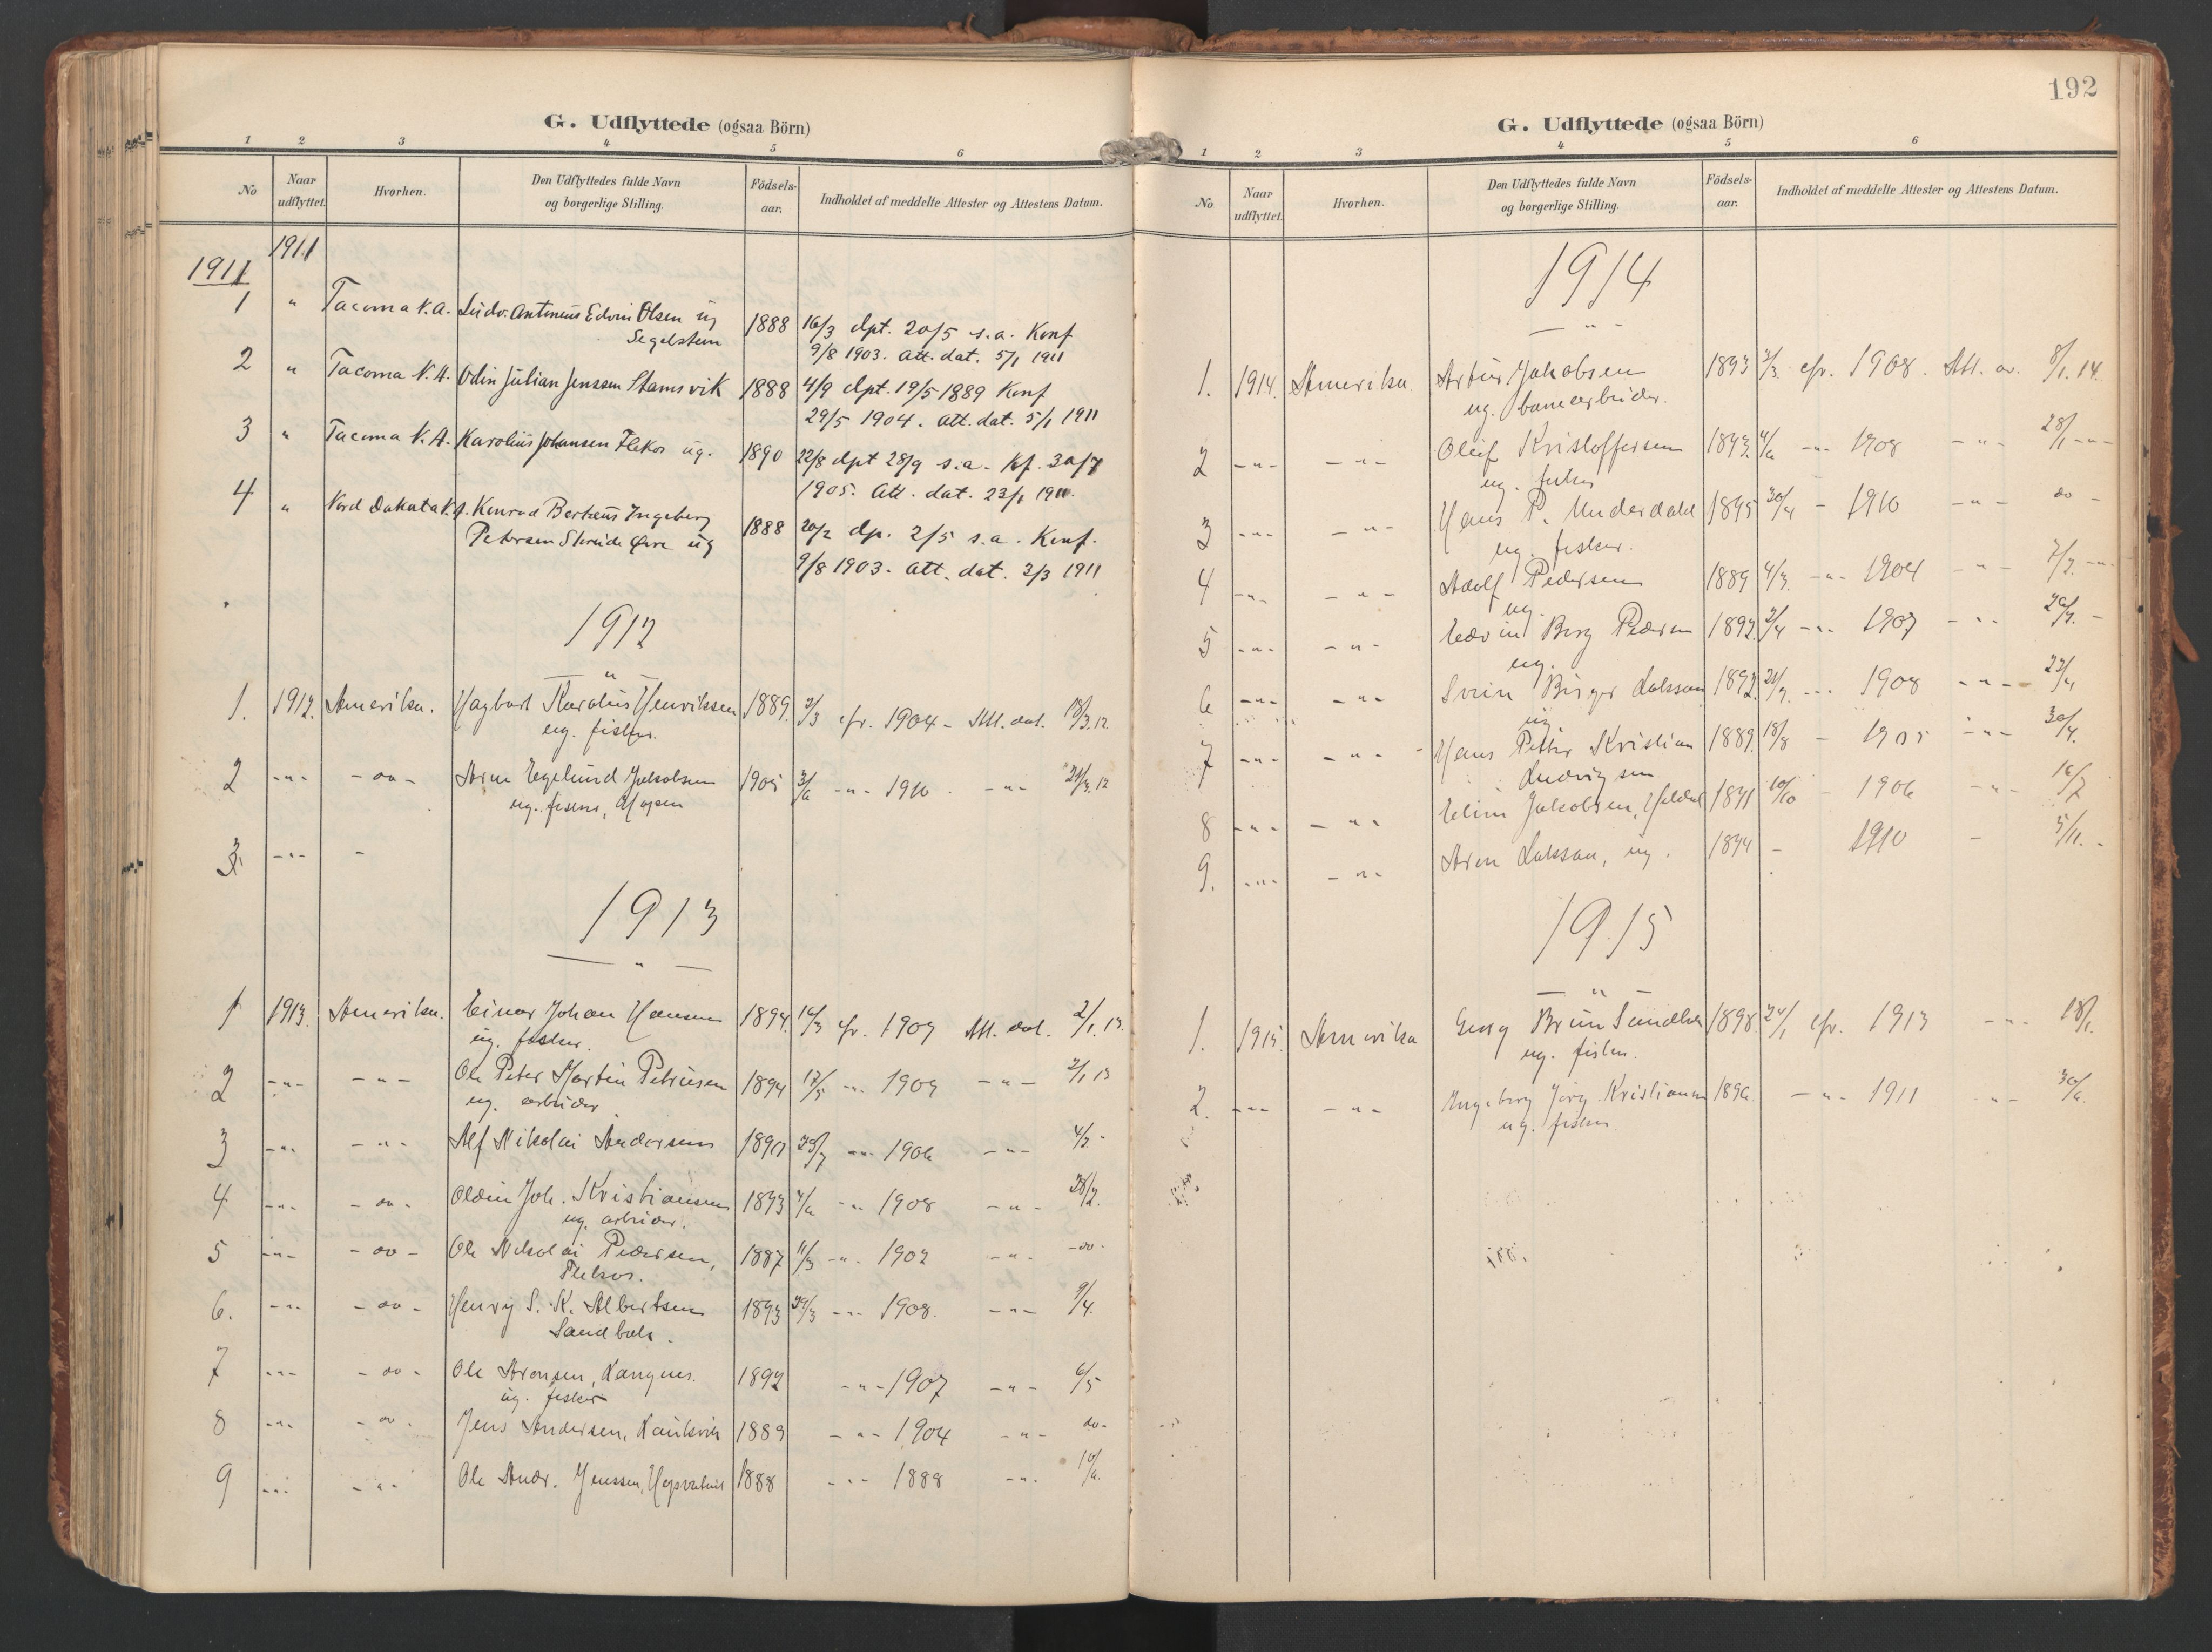 G. Udflyttede (ogsaa Börn)
1 2 3 4 5 6
No
Naar udflyttet.
Hvorhen.
Den Udflyttedes fulde Navn og borgerlige Stilling.
Födsels-aar.
Indholdet af meddelte Attester og Attestens Datum.
1911
1911
1 " Tacoma N.A. Ludv. Antonius Edvin Olsen ug 1888 16/3 dpt. 20/5 s.a. Konf
Segelstein 9/8 1903. Att. dat. 5/1 1911
2 " Tacoma N.A. Odin Julian Jenssen Stamsvik 1888 4/9 dpt. 19/5 1889 Konf
29/5 1904. Att. dat. 5/1 1911
3 " Tacoma N.A. Karolius Johansen Flekos ug. 1890 22/8 dpt 28/9 s.a. Kf. 30/7
1905. Att. dat. 23/1 1911.
4 " Nord Dakota N.A. Konrad Berteus Ingeberg
Petersen Skreide Øire ug 1888 20/2 dp. 2/5 s.a. Konf.
9/8 1903. Att. dat. 3/3 1911
1912
1. 1912. Amerika. Hagbart Karolius Henriksen 1889. 3/3 efr. 1904 - Att. dat. 18/3.12.
ug. fisker.
2 -"- - do - Arne Egelund Jakobsen 1905 3/6 -"- 1910 -"- 29/3.12
ug.
3. -"- -
1913
1 1913. Amerika. Einar Johan Hansen 1894. 14/3 efr. 1909 Att. dat. 2/1.13.
ug. fisker.
2 -"- -"- Ole Peter Martin Petersen 1894 17/5 -"- 1909 -"- 2/1 13
ug. arbeider
3 -"- -"- Alf Nikolai Andersen 1890 29/7 -"- 1906 -"- 4/2 -
4 -"- - do - Oldin Joh. Kristiansen 1893 4/6 -"- 1908 -"- 28/2.
ug. arbeider.
5 -"- - do - Ole Nikolai Pedersen, 1887 11/3 -"- 1902 -"- - do -
Flekos.
6. -"- - do - Henry S. K. Albertsen 1893 29/3 -"- 1908. -"- 9/4.
Sandbak.
7 -"- - do - Ole Aronsen, Langnes. 1892 -"- 1907 -"- 6/5
ug. fisker
8 -"- - do - Jens Andersen, Kaukvik 1889 -"- 1904 -"- do -
9 -"- -"- Ole Andr. Jenssen, 1888 -"- 1888 -"- 10/6.
192
G. Udflyttede (ogsaa Börn)
1 2 3 4 5 6
No
Naar udflyttet.
Hvorhen.
Den Udflyttedes fulde Navn og borgerlige Stilling.
Födsels-aar.
Indholdet af meddelte Attester og Attestens Datum.
1914
1. 1914. Amerika. Artur Jakobsen 1893 3/3 efr. 1908. Att. av. 8/1.14.
ug. banearbeider.
2 -"- -"- Oleif Kristoffersen 1893. 4/6 -"- 1908 -"- 28/1 -"-
ug. fisker
3 -"- -"- Hans P. Underdahl 1895 30/4 - 1910 -"- do -
ug. fisker.
4 -"- -"- Adolf Pedersen 1889 4/3 -"- 1904 -"- 7/3. -"-
ug.
5 -"- -"- Edvin Berg Pedersen 1892. 3/4 -"- 1907 -"- 29/3. -
ug.
6 -"- -"- Svein Birger Lakssaa 1892. 21/9 -"- 1908 -"- 22/4
ug.
7 -"- -"- Hans Petter Kristian 1889. 18/8 - 1905 -"- 30/4.
Ludvigsen
8 -"- -"- Elius Jakobsen, 1891 10/10 - 1906 -"- 16/7
9. -"- -"- Aron Lakssaa, ug. 1894 - 1910 - 5/11. -
1915
1. 1915. Amerika Georg Brun Sandbak 1898. 24/1 efr. 1913 -"- 18/1.
ug. fisker.
2. -"- -"- Ingeberg Jörg. Kristiansen 1896. -"- 1911 -"- 30/6.
ug. fisker.